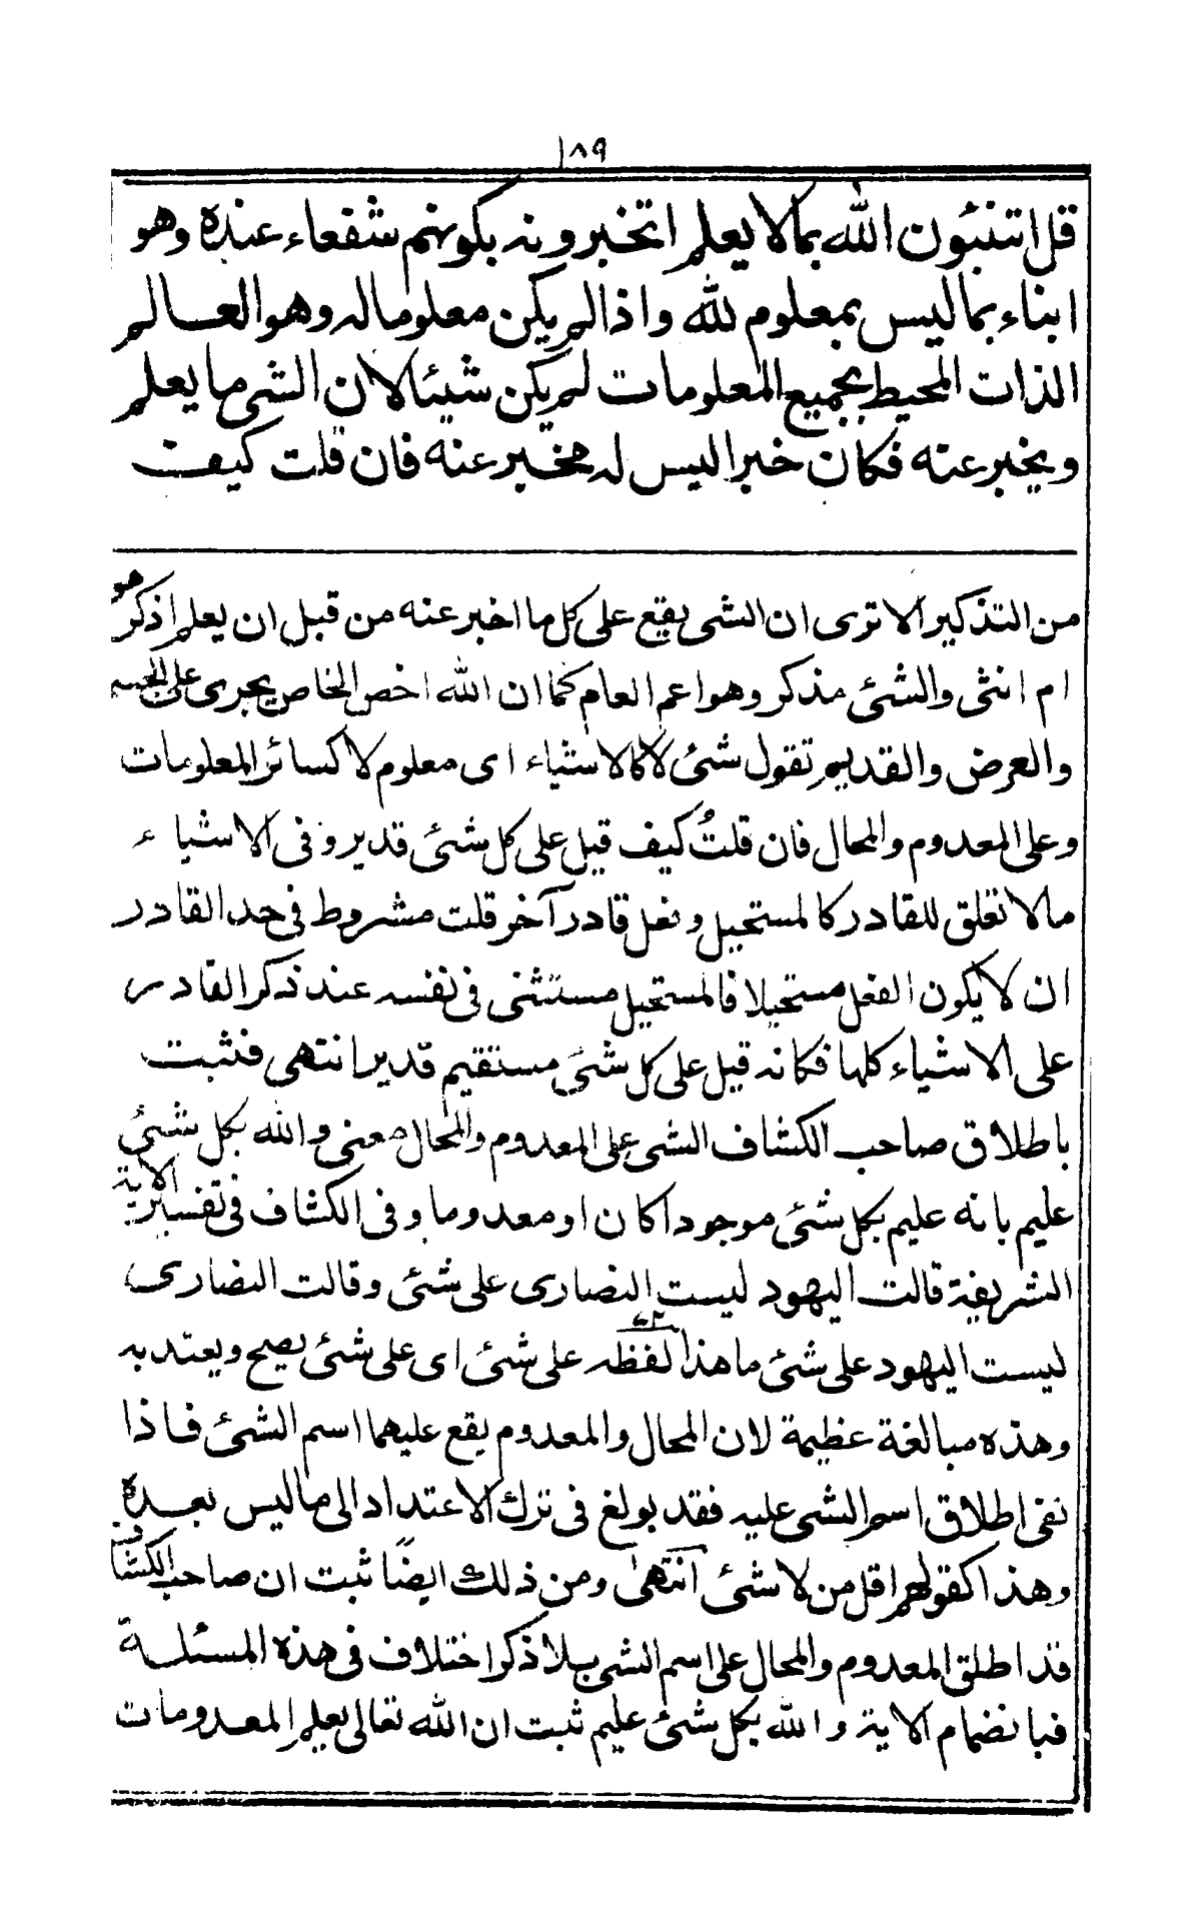 ١٨٩
قل اتنبئون الله بما لا يعلم اتخبرونه بكونهم شفعاء عنده وهو
انباء بما ليس بمعلوم لله واذا لم يكن معلوما له وهو العالم
الذات المحيط بجميع المعلومات لم يكن شيئا لان الشئ ما يعلم
ويخبر عنه فكان خبرا ليس له مخبر عنه فان قلت كيف
من التذكير الا ترى ان الشئ يقع على كل ما اخبر عنه من قبل ان يعلم اذكر هو
ام انثى والشئ مذكر وهو اعم العام كما ان الله اخص الخاص يجرى على الجسم
والعرض والقديم تقول شئ لا كالاشياء اى معلوم لا كسائر المعلومات
وعلى المعدوم والمحال فان قلتُ كيف قيل على كل شئ قدير وفى الاشياء
مالا تعلق للقادر كالمستحيل وفعل قادر آخر قلت مشروط فى حد القادر
ان لا يكون الفعل مستحيلا فالمستحيل مستثنى فى نفسه عند ذكر القادر
على الاشياء كلها فكانه قيل على كل شئ مستقيم قدير انتهى فثبت
باطلاق صاحب الكشاف الشى على المعدوم والمحال معنى والله بكل شئ
عليم بانه عليم بكل شئ موجودا كان او معدوما وفى الكشاف فى تفسير الاية
الشريفة قالت اليهود ليست النصارى على شئ وقالت النصارى
ليست اليهود على شئ ما هذا لفظه على شئ اى على شئ يصح ويعتد به
وهذه مبالغة عظيمة لان المحال والمعدوم يقع عليهما اسم الشئ فاذا
نفى اطلاق اسم الشى عليه فقد بولغ فى ترك الاعتداد الى ما ليس بعده
وهذا كقولهم اقل من لا شئ انتهى ومن ذلك ايضًا ثبت ان صاحب الكشاف
قد اطلق المعدوم والمحال على اسم الشى بلا ذكر اختلاف فى هذه المسئلة
فبانضمام الاية والله بكل شئ عليم ثبت ان الله تعالى يعلم المعدومات